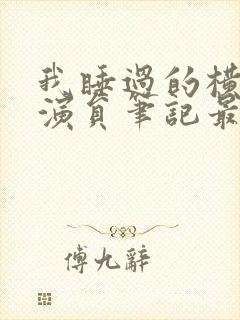 我睡過的橫
演員筆記最
傅九辭